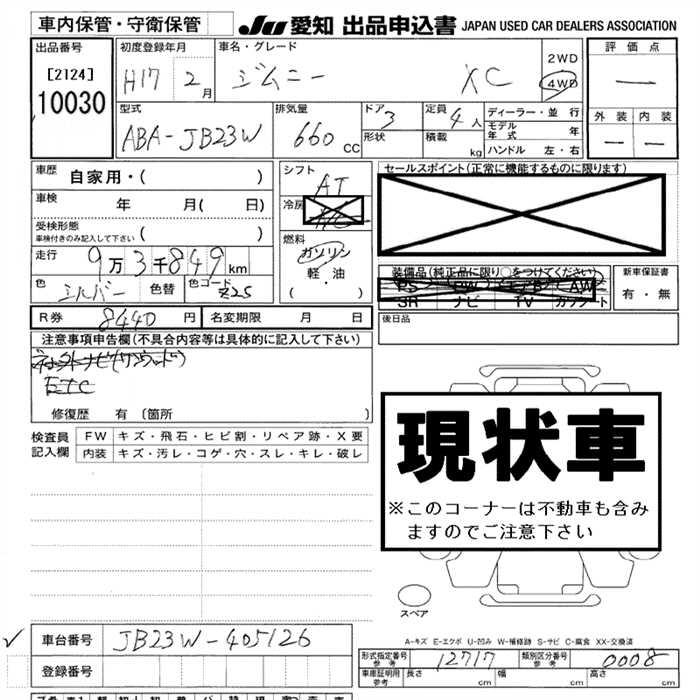 車内保管・守衛保管
JU 愛知 出品申込書 JAPAN USED CAR DEALERS ASSOCIATION
出品番号
[2124]
10030
初度登録年月
H17 2月
車名・グレード
ジムニー XC
2WD
4WD
評価点
—
外装 内装
— —
型式
ABA-JB23W
排気量
660 cc
ドア 3
形状
定員 4人
積載 kg
ディーラー・並行
モデル年式 年
ハンドル 左・右
車歴 自家用・( )
車検 年 月( 日)
受検形態
車検付きのみ記入して下さい ( )
走行 9万3千849km
色 シルバー 色替 色コード Z2S
シフト AT
冷房 A/C
燃料
ガソリン
軽・油
( ・ )
セールスポイント(正常に機能するものに限ります)
装備品(純正品に限り○をつけてください)
PS PW エアB AW
SR ナビ TV カワシート
新車保証書
有・無
R券 8440円 名変期限 月 日
後日品
注意事項申告欄(不具合内容等は具体的に記入して下さい)
ETC
修復歴 有 [箇所 ]
検査員記入欄
FW キズ・飛石・ヒビ割・リペア跡・X要
内装 キズ・汚レ・コゲ・穴・スレ・キレ・破レ
現状車
※このコーナーは不動車も含み
ますのでご注意下さい
スペア
✓ 車台番号 JB23W-405126
登録番号
A-キズ E-エクボ U-凹み W-補修跡 S-サビ C-腐食 XX-交換済
形式指定番号 参考 12717 類別区分番号 参考 0008
車庫証明用 参考 長さ cm 幅 cm 高さ cm